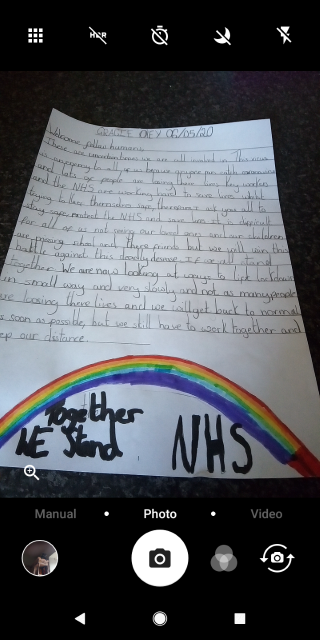 HDR
GRACIE DAEX 06/05/20
Welcome fellow humans,
These are uncertain times we are all in. This
is an emergency to all of us
and lots of people are losing there lives key workers
and the NHS are working hard to save lives whilst
trying to keep themselves safe, themselves ask you all to
stay safe protect the NHS and save lives it is difficult
for all of us not seeing our loved ones and children
are missing school and there friends but we will win this
battle against this deadly disease. If we all stand
together. We are now looking at ways to lift lockdown
in small way and very slowly and not as many people
are loosing there lives and we will get back to normal
s soon as possible, but we still have to work together and
ep our distance.
Together NHS
WE Stand
Manual • Photo • Video